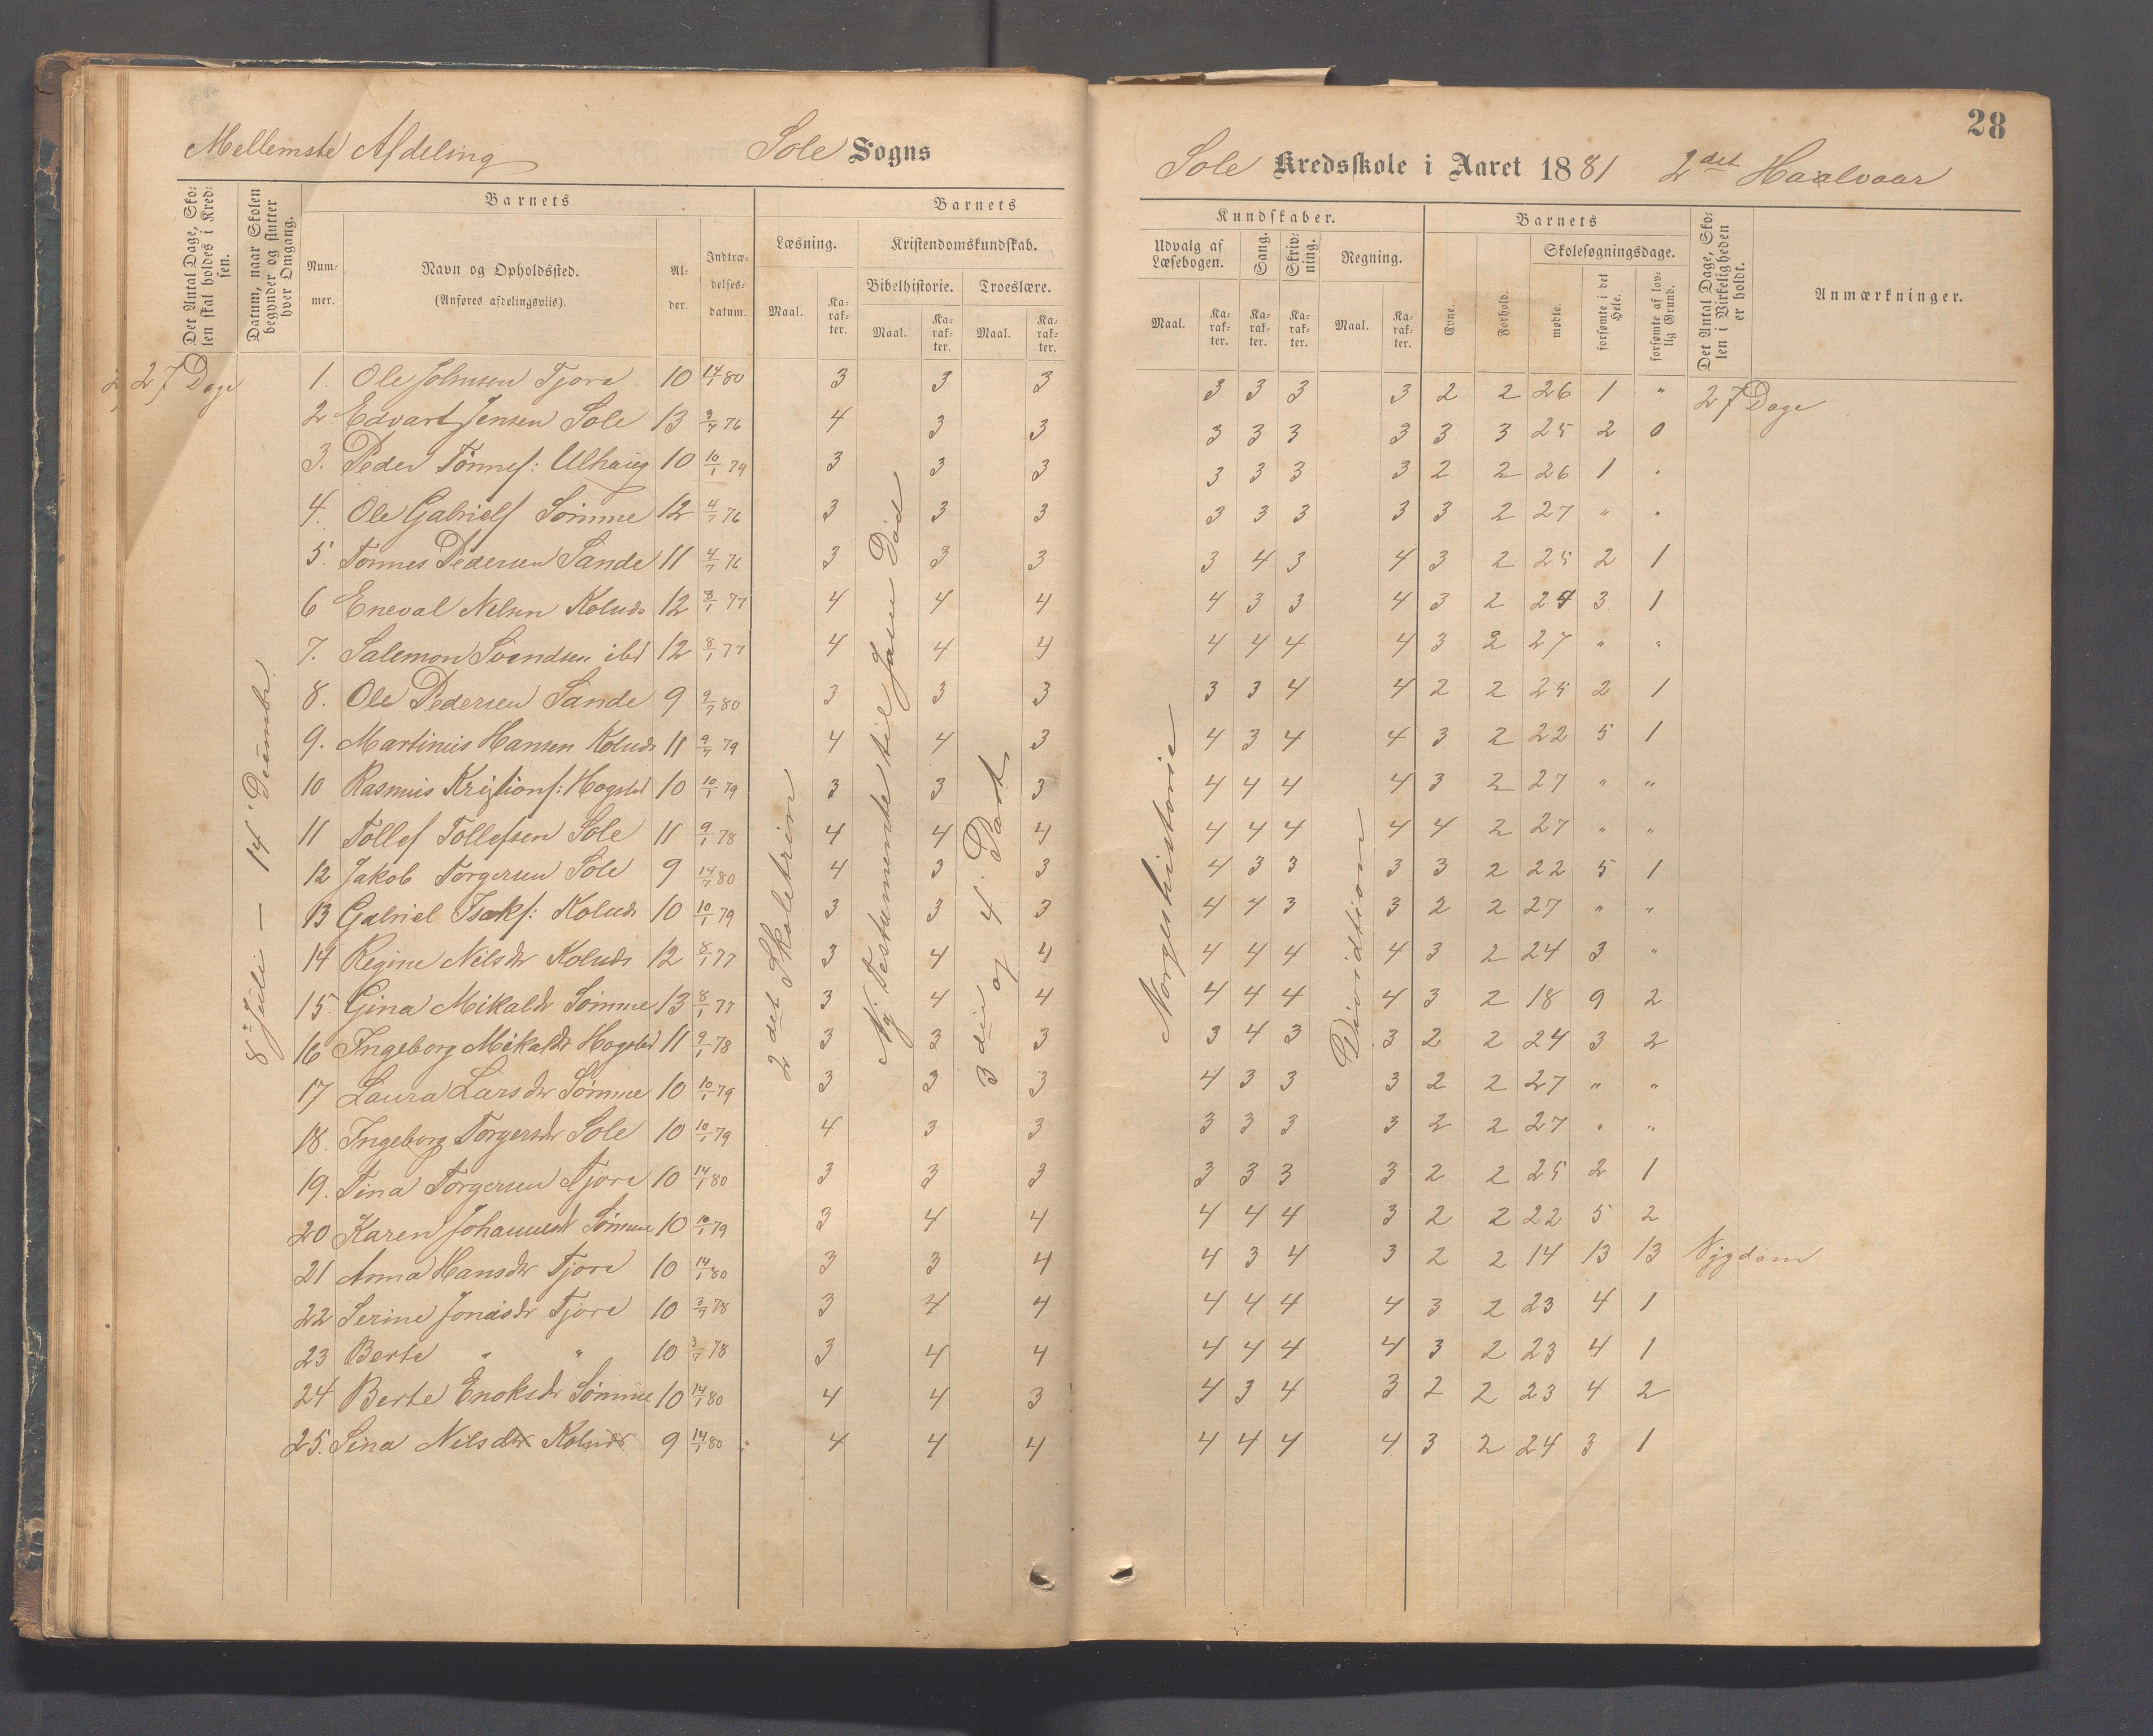 28
Mellemste Afdeling Sole Sogns Sole Kredsskole i Aaret 1881 2det Haalvaar
Det Antal Dage, Skolen skal holdes i Kredsen.
Datum, naar Skolen begynder og slutter hver Omgang.
Barnets
Nummer.
Navn og Opholdssted.
(Anføres afdelingsviis).
Alder.
Indtrædelsesdatum.
Barnets Kundskaber.
Læsning. Maal. Karakter.
Kristendomskundskab.
Bibelhistorie. Maal. Karakter.
Troeslære. Maal. Karakter.
Udvalg af Læsebogen. Maal. Karakter.
Sang. Karakter.
Skrivning. Karakter.
Regning. Maal. Karakter.
Barnets
Evne.
Forhold.
Skolesøgningsdage.
mødte.
forsømte i det Hele.
forsømte af lovlig Grund.
Det Antal Dage, Skolen i Virkeligheden er holdt.
Anmærkninger.
27 Dage
8de Juli — 14 Decemb.
2det Skoletrin
Ny Testamente til Jesu Død
3die og 4. Part
Norgeshistorie
Dividtion
27 Dage
1. Ole Johnsen Tjora 10 14/1 80 3 3 3 3 3 3 3 2 2 26 1 "
2 Edvart Jensen Sole 13 3/7 76 4 3 3 3 3 3 3 3 3 25 2 0
3. Peder Tønnes: Ulhaug 10 10/1 79 3 3 3 3 3 3 3 2 2 26 1 "
4. Ole Gabriels Sømme 12 4/7 76 3 3 3 3 3 3 3 3 2 27 " "
5. Tønnes Pedersen Sande 11 4/7 76 3 3 3 3 4 3 4 3 2 25 2 1
6 Eneval Nelsen Kolnds 12 8/1 77 4 4 4 4 3 3 4 3 2 24 3 1
7. Salemon Svendsen ibd 12 8/1 77 4 4 4 4 4 4 4 3 2 27 " "
8. Ole Pedersen Sande 9 9/7 80 3 3 3 3 3 4 4 2 2 25 2 1
9. Martinius Hansen Kolnds 11 9/7 79 4 4 3 4 3 4 4 3 2 22 5 1
10 Rasmus Kristians: Hogsted 10 10/1 79 3 3 3 4 4 4 4 3 2 27 " "
11 Tollef Tollefsen Sole 11 9/1 78 4 4 4 4 4 4 4 4 2 27 " "
12 Jakob Torgersen Sole 9 14/7 80 4 3 3 4 3 3 3 3 2 22 5 1
13 Gabriel Isaks: Kolnds 10 10/1 79 3 3 3 4 4 3 3 2 2 27 " "
14 Regine Nilsdr Kolnds 12 8/1 77 3 4 4 4 4 4 4 3 2 24 3 "
15. Gina Mikaldr Sømme 13 8/1 77 3 4 4 4 4 4 4 3 2 18 9 2
16 Ingeborg Mikaldr Hogsted 11 9/1 78 3 3 3 3 4 3 3 2 2 24 3 2
17 Laura Larsdr Sømme 10 10/1 79 3 3 3 4 3 3 3 2 2 27 " "
18. Ingeborg Torgersdr Sole 10 10/1 79 4 3 3 3 3 3 3 2 2 27 " "
19. Tina Torgersen Tjora 10 14/1 80 3 3 3 3 3 3 3 2 2 25 2 1
20 Karen Johannesd Sømme 10 10/1 79 3 4 4 4 4 4 3 2 2 22 5 2
21 Anna Hansdr Tjora 10 14/1 80 3 3 4 4 3 4 3 2 2 14 13 13 Sygdom
22 Serine Jonasdr Tjora 10 3/7 78 3 4 4 4 4 4 4 3 2 23 4 1
23 Berte " " 10 3/7 78 3 4 4 4 4 4 4 3 2 23 4 1
24 Berte Enoksdr Sømme 10 14/1 80 4 4 3 4 3 4 3 2 2 23 4 2
25. Sina Nilsdtr Kolnds 9 14/1 80 4 4 4 4 4 4 4 3 2 24 3 1